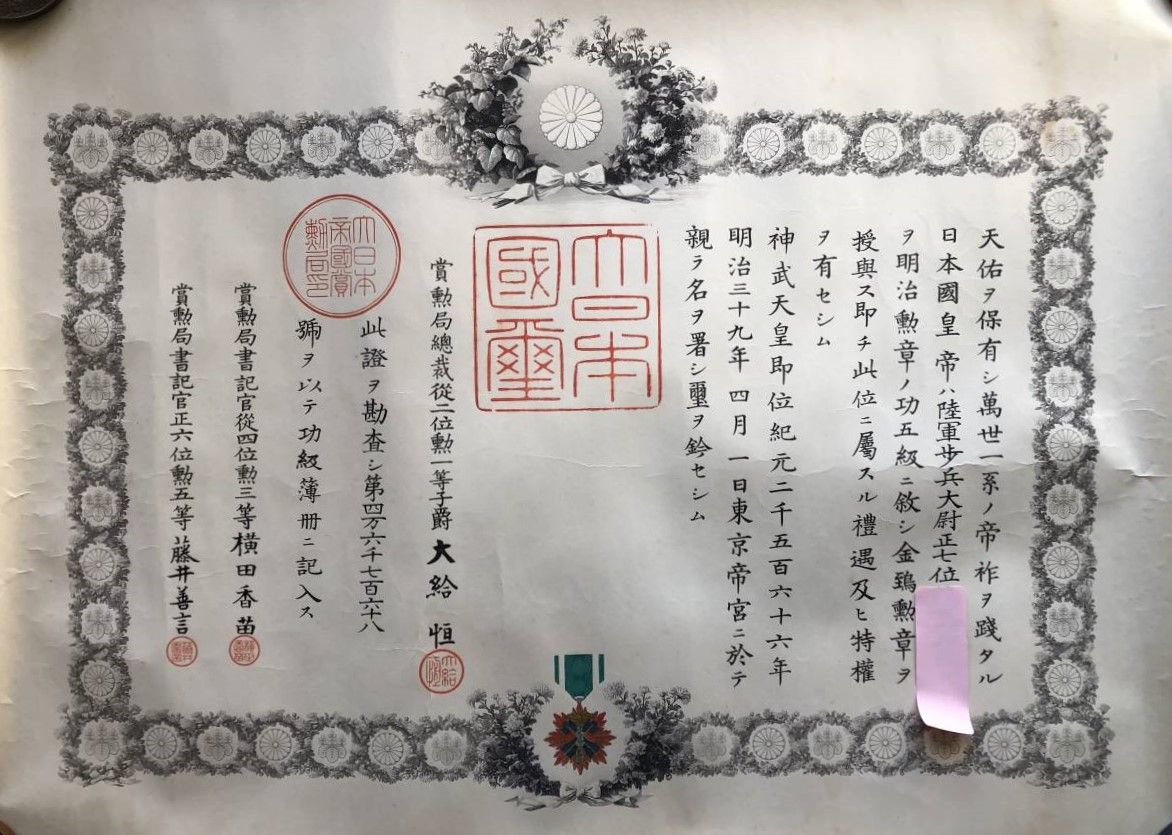 天佑ヲ保有シ萬世一系ノ帝祚ヲ踐タル
日本國皇帝ハ陸軍步兵大尉正七位
ヲ明治勲章ノ功五級ニ敘シ金鵄勲章ヲ
授與ス即チ此位ニ屬スル禮遇及ヒ特權
ヲ有セシム
神武天皇即位紀元二千五百六十六年
明治三十九年四月一日東京帝宮ニ於テ
親ラ名ヲ署シ璽ヲ鈐セシム
大日本
國璽
賞勲局總裁從二位勲一等子爵大給恒
大給恒
大日本
帝國賞
勲局印
此證ヲ勘査シ第四万六千七百六十八
號ヲ以テ功級簿册ニ記入ス
賞勲局書記官從四位勲三等橫田香苗
賞勲局書記官正六位勲五等藤井善言